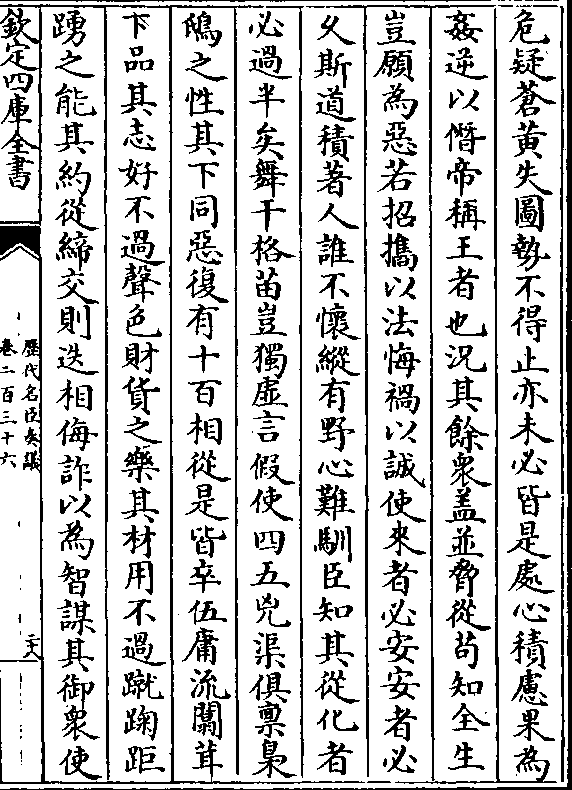 危疑蒼黄失圖勢不得止亦未必皆是處心積慮果為
姦逆以僭帝稱王者也況其餘衆盖並脅從苟知全生
豈願為惡若招攜以法悔禍以誠使來者必安安者必
乂斯道積著人誰不懷縱有野心難馴臣知其從化者
必過半矣舞干格苗豈獨虛言假使四五兇渠俱禀梟
鴟之性其下同惡復有十百相從是皆卒伍庸流闒茸
下品其志好不過聲色財貨之樂其材用不過蹴踘距
踴之能其約從締交則迭相侮詐以為智謀其御衆使
欽定四庫全書
歷代名臣奏議
卷二百三十六
二十八